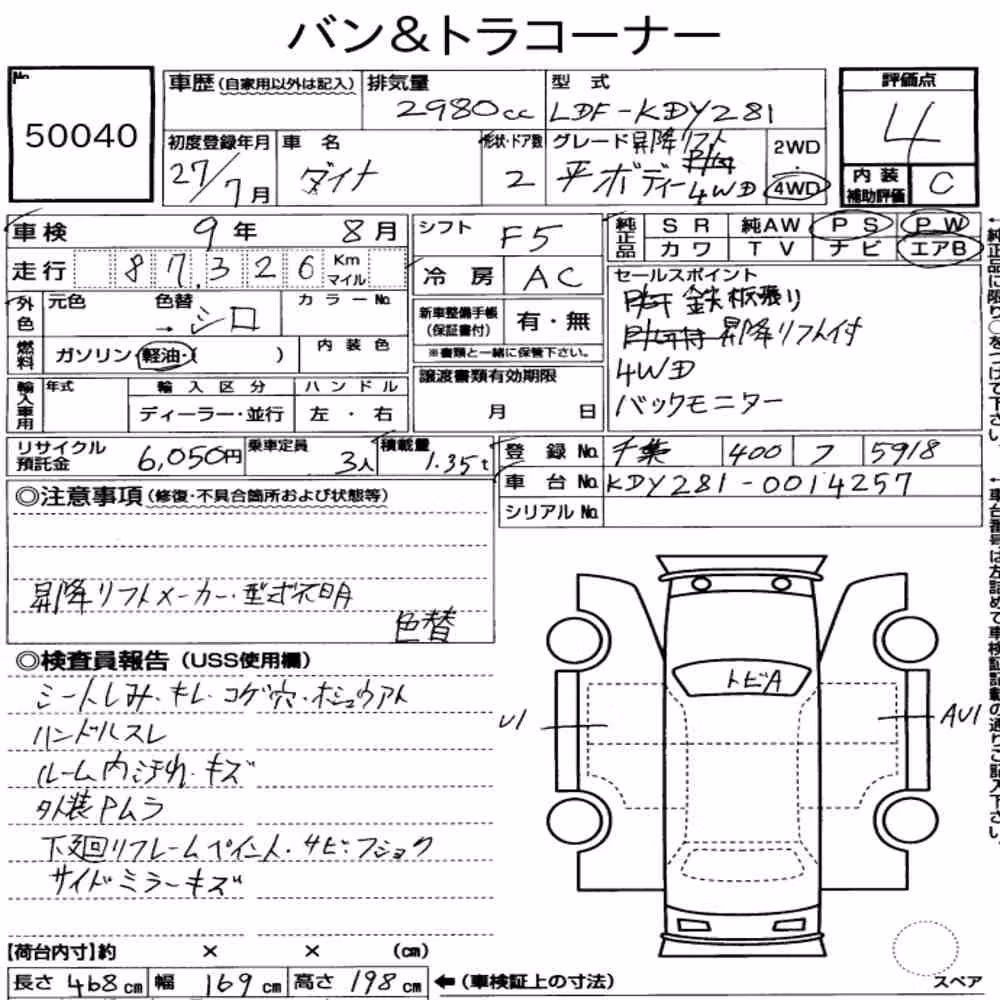 バン&トラコーナー
No.
50040
車歴(自家用以外は記入) 排気量 型式
2980cc LDF-KDY281
初度登録年月 車名 形状・ドア数 グレード 昇降リフト 2WD
27/7月 ダイナ 2 平ボディー 4WD ・ 4WD
評価点
4
内装補助評価 C
車検 9年 8月
走行 87,326 Km マイル
外色 元色 色替 カラーNo.
→ シロ
燃料 ガソリン・軽油・( ) 内装色
輸入車用 年式 輸入区分 ハンドル
ディーラー・並行 左・右
シフト F5
冷房 AC
新車整備手帳(保証書付) 有・無
※書類と一緒に保管下さい。
譲渡書類有効期限
月 日
純正品 SR 純AW PS PW
カワ TV ナビ エアB
セールスポイント
鉄板張り
昇降リフト付
4WD
バックモニター
リサイクル預託金 6,050円 乗車定員 3人 積載量 1.35t
登録No. 千葉 400 フ 5918
車台No. KDY281-0014257
シリアルNo.
◎注意事項(修復・不具合箇所および状態等)
昇降リフトメーカー・型式不明
色替
◎検査員報告(USS使用欄)
シートしみ・キレ・コゲ穴・ホシュウアト
ハンドルスレ
ルーム内汚れ・キズ
外装Pムラ
下廻リフレームペイント・サビ・フショク
サイドミラーキズ
トビA
U1
AU1
【荷台内寸】約 × × (cm)
長さ 468cm 幅 169cm 高さ 198cm ←(車検証上の寸法)
スペア
←純正品に限り○をつけて下さい。
←車台番号は左詰めで車検証記載の通りご記入下さい。